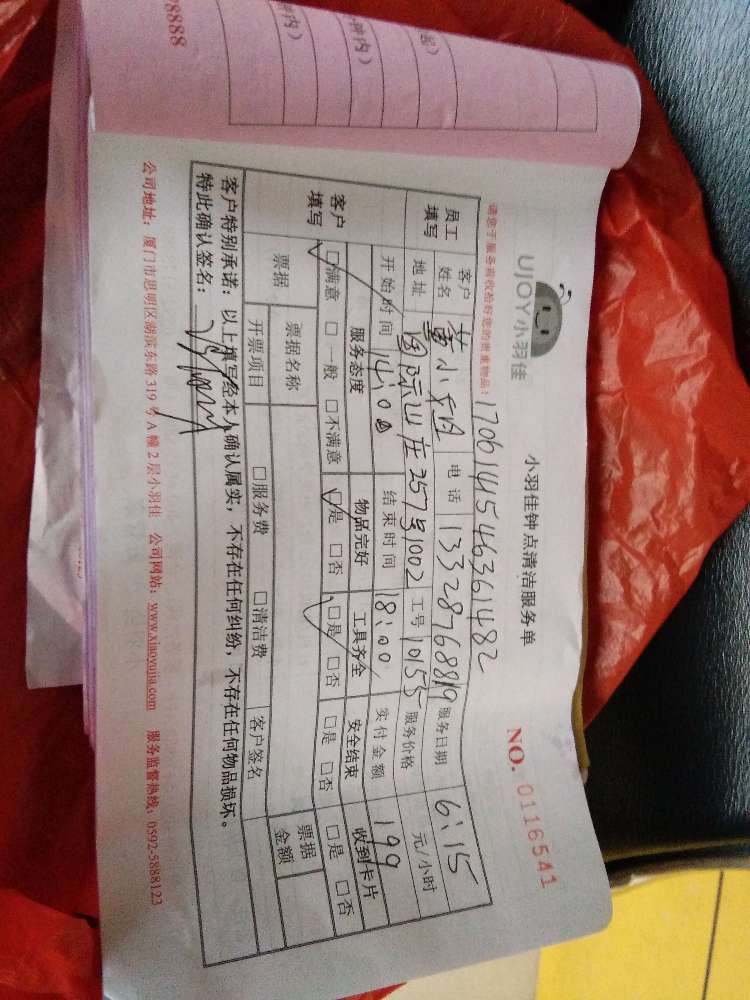 UJOY小羽佳
小羽佳钟点清洁服务单
NO. 0116541
请您于服务前收拾好您的贵重物品:
1706141546361482
员工填写 客户姓名 黄小 电话 13328768819 服务日期 6:15
地址 国际山庄257号1002 工号 10155 服务价格 元/小时
客户填写 开始时间 14:00 结束时间 18:00 实付金额 199
服务态度 物品完好 工具齐全 安全结束 收到卡片
☑满意 □一般 □不满意 ☑是 □否 ☑是 □否 □是 □否 □是 □否
票据 票据名称 票据金额
开票项目 □服务费 □清洁费 客户签名
客户特别承诺:以上填写经本人确认属实,不存在任何纠纷,不存在任何物品损坏。
特此确认签名:
公司地址:厦门市思明区湖滨东路319号A幢2层小羽佳 公司网站:www.xiaoyujia.com 服务监督热线:0592-5888123
钟内)
钟内)
起)
8888